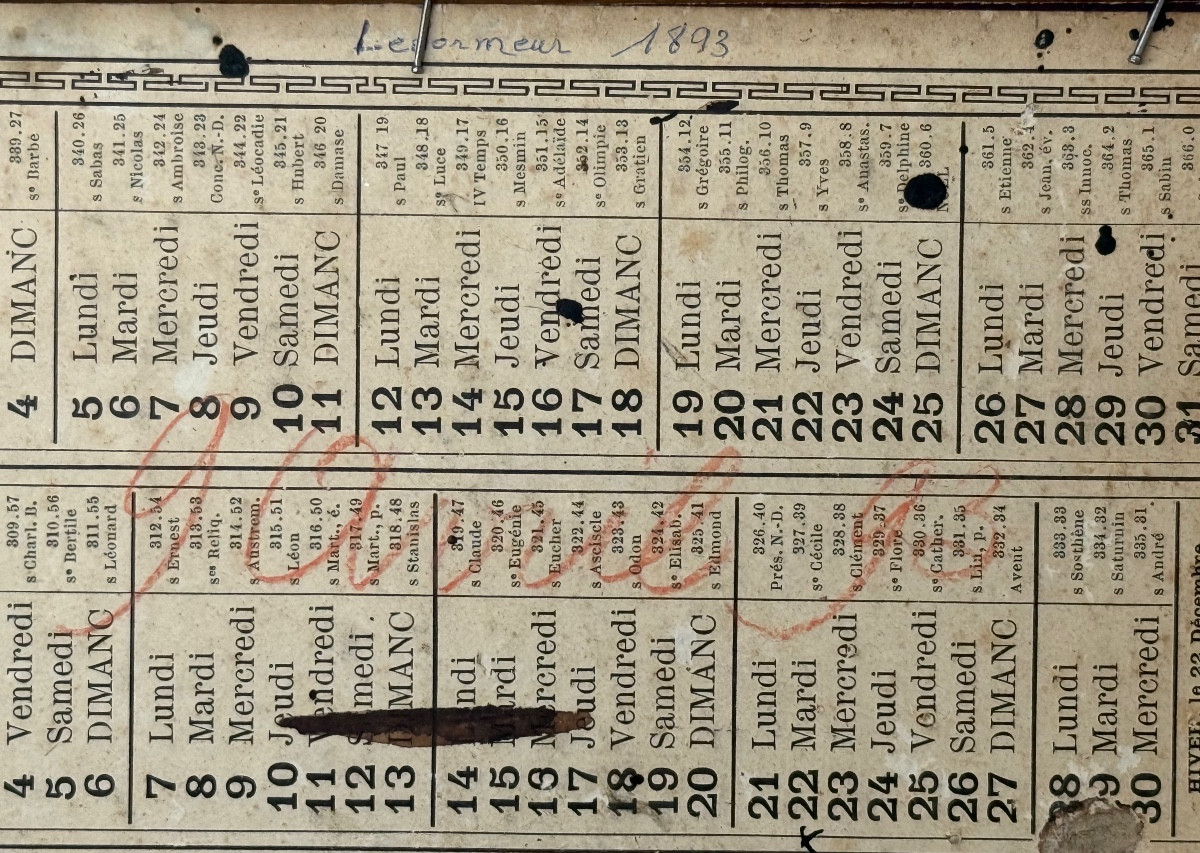 1893
4 Vendredi 309.57 s Charl. B.
5 Samedi 310.56 sᵉ Bertile
6 DIMANC 311.55 s Léonard
7 Lundi 312.54 s Ernest
8 Mardi 313.53 sᵉˢ Reliq.
9 Mercredi 314.52 s Austrem.
10 Jeudi 315.51 s Léon
11 Vendredi 316.50 s Mart., é.
12 Samedi 317.49 s Mart., p.
13 DIMANC 318.48 s Stanislas
14 Lundi 319.47 s Claude
15 Mardi 320.46 sᵉ Eugénie
16 Mercredi 321.45 s Eucher
17 Jeudi 322.44 s Asciscle
18 Vendredi 323.43 s Odon
19 Samedi 324.42 sᵉ Elisab.
20 DIMANC 325.41 s Edmond
21 Lundi 326.40 Prés. N.-D.
22 Mardi 327.39 sᵉ Cécile
23 Mercredi 328.38 s Clément
24 Jeudi 329.37 sᵉ Flore
25 Vendredi 330.36 sᵉ Cather.
26 Samedi 331.35 s Lin, p.
27 DIMANC 332.34 Avent
28 Lundi 333.33 s Sosthène
29 Mardi 334.32 s Saturnin
30 Mercredi 335.31 s André
HIVER, le 22 Décembre
4 DIMANC 339.27 sᵉ Barbe
5 Lundi 340.26 s Sabas
6 Mardi 341.25 s Nicolas
7 Mercredi 342.24 s Ambroise
8 Jeudi 343.23 Conc. N.-D.
9 Vendredi 344.22 sᵉ Léocadie
10 Samedi 345.21 s Hubert
11 DIMANC 346 20 s Damase
12 Lundi 347 19 s Paul
13 Mardi 348.18 sᵉ Luce
14 Mercredi 349.17 IV Temps
15 Jeudi 350.16 s Mesmin
16 Vendredi 351.15 sᵉ Adélaïde
17 Samedi 352.14 sᵉ Olimpie
18 DIMANC 353.13 s Gratien
19 Lundi 354.12 s Grégoire
20 Mardi 355.11 s Philog.
21 Mercredi 356.10 s Thomas
22 Jeudi 357.9 s Yves
23 Vendredi 358.8 sᵉ Anastas.
24 Samedi 359.7 sᵉ Delphine
25 DIMANC 360.6 NOEL
26 Lundi 361.5 s Etienne
27 Mardi 362.4 s Jean, év.
28 Mercredi 363.3 ss Innoc.
29 Jeudi 364.2 s Thomas
30 Vendredi 365.1 s Sabin
31 Samedi 366.0